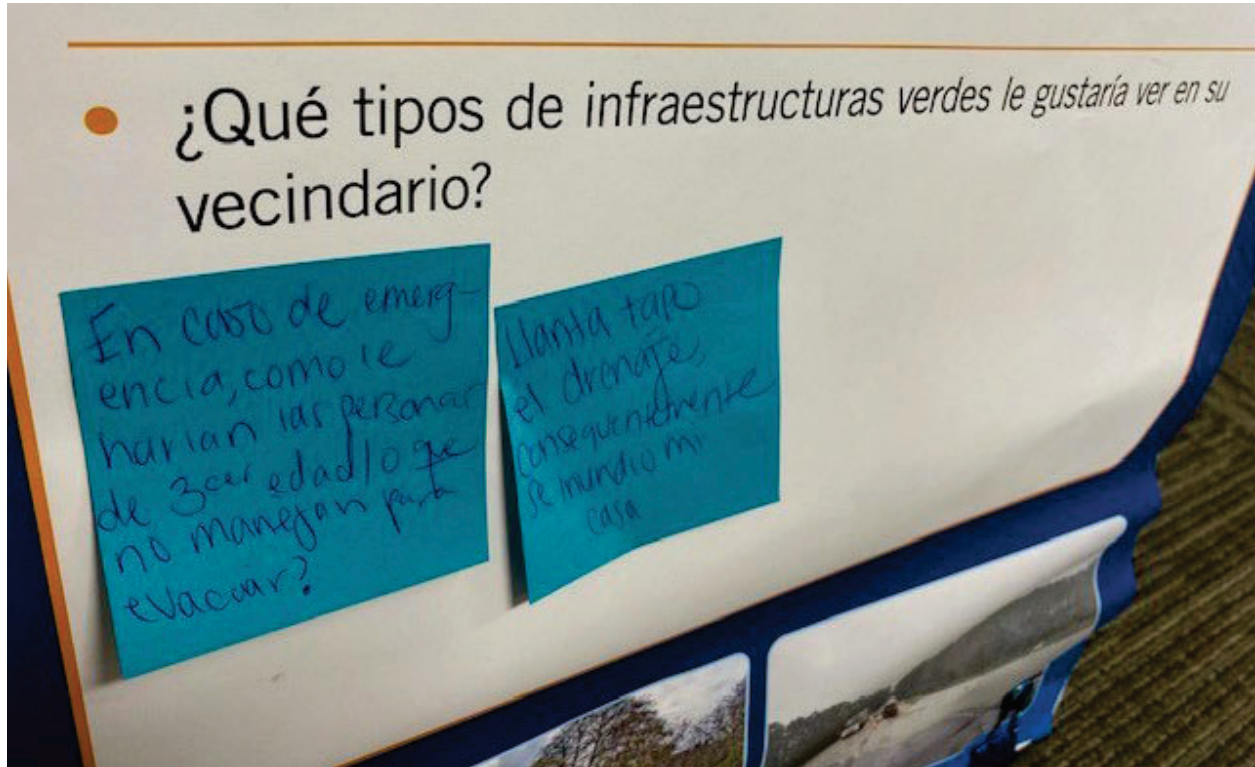 • ¿Qué tipos de infraestructuras verdes le gustaría ver en su
vecindario?
En caso de emerg-
encia, como le
harian las personas
de 3cer edad lo que
no manejan para
evacuar?
Llanta tapo
el drenaje,
consequentemente
se inundio mi
casa